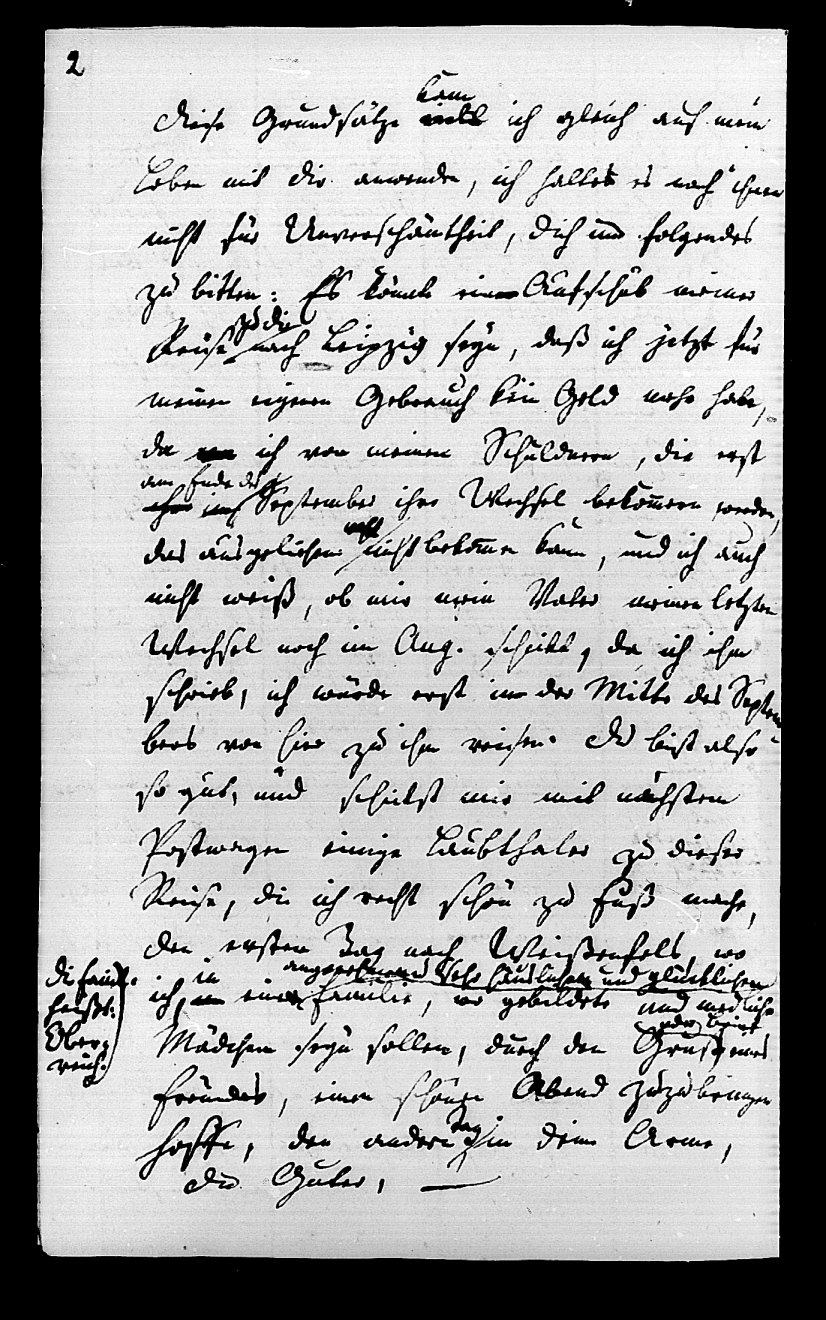 2
kann
Diese Grundsätze ich gleich auf mein
Leben mit dir anwenden, ich halte es nach ihnen
nicht für Unverschämtheit, dich um folgendes
zu bitten: Es könnte ein Aufschub meiner
zu dir
Reise nach Leipzig seyn, daß ich jetzt für
meinen eigenen Gebrauch kein Geld mehr habe,
da ich von meinen Schuldnern, die erst
am Ende des
September ihre Wechsel bekommen werden,
das ausgeliehene nicht bekommen kann, und ich auch
nicht weiß, ob mir mein Vater meinen letzten
Wechsel noch im Aug. schickt, da ich ihm
schrieb, ich würde erst in der Mitte des Septem
bers von hier zu ihm reisen. Du bist also
so gut, und schickst mir mit nächstem
Postwagen einige Laubthaler zu dieser
Reise, die ich recht schön zu Fuß mache,
den ersten Tag nach Weißenfels, wo
angenehmen sehr häuslichen und glücklichen
ich in einer Familie, wo gebildete und niedliche
Mädchen seyn sollen, durch den Gruß eines
oder Brief
Freundes, einen schönen Abend zuzubringen
hoffe, den andern Tag in deine Arme,
du Guter, —
die Famil.
heißt:
Ober-
reich.